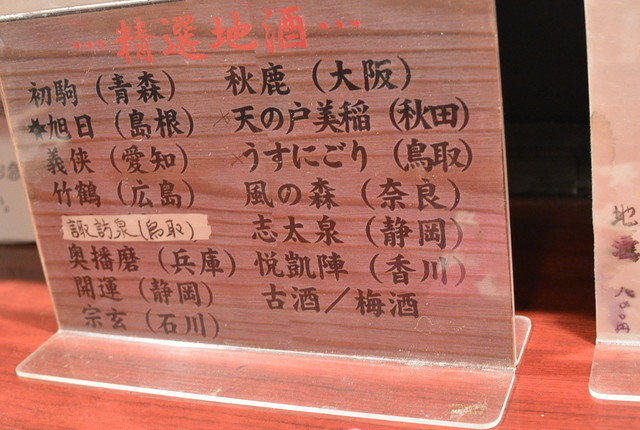 …精選地酒…
初駒（青森）
★旭日（島根）
義侠（愛知）
竹鶴（広島）
諏訪泉（鳥取）
奥播磨（兵庫）
開運（静岡）
宗玄（石川）
秋鹿（大阪）
天の戸美稲（秋田）
うすにごり（鳥取）
風の森（奈良）
志太泉（静岡）
悦凱陣（香川）
古酒／梅酒
地酒
八〇〇円